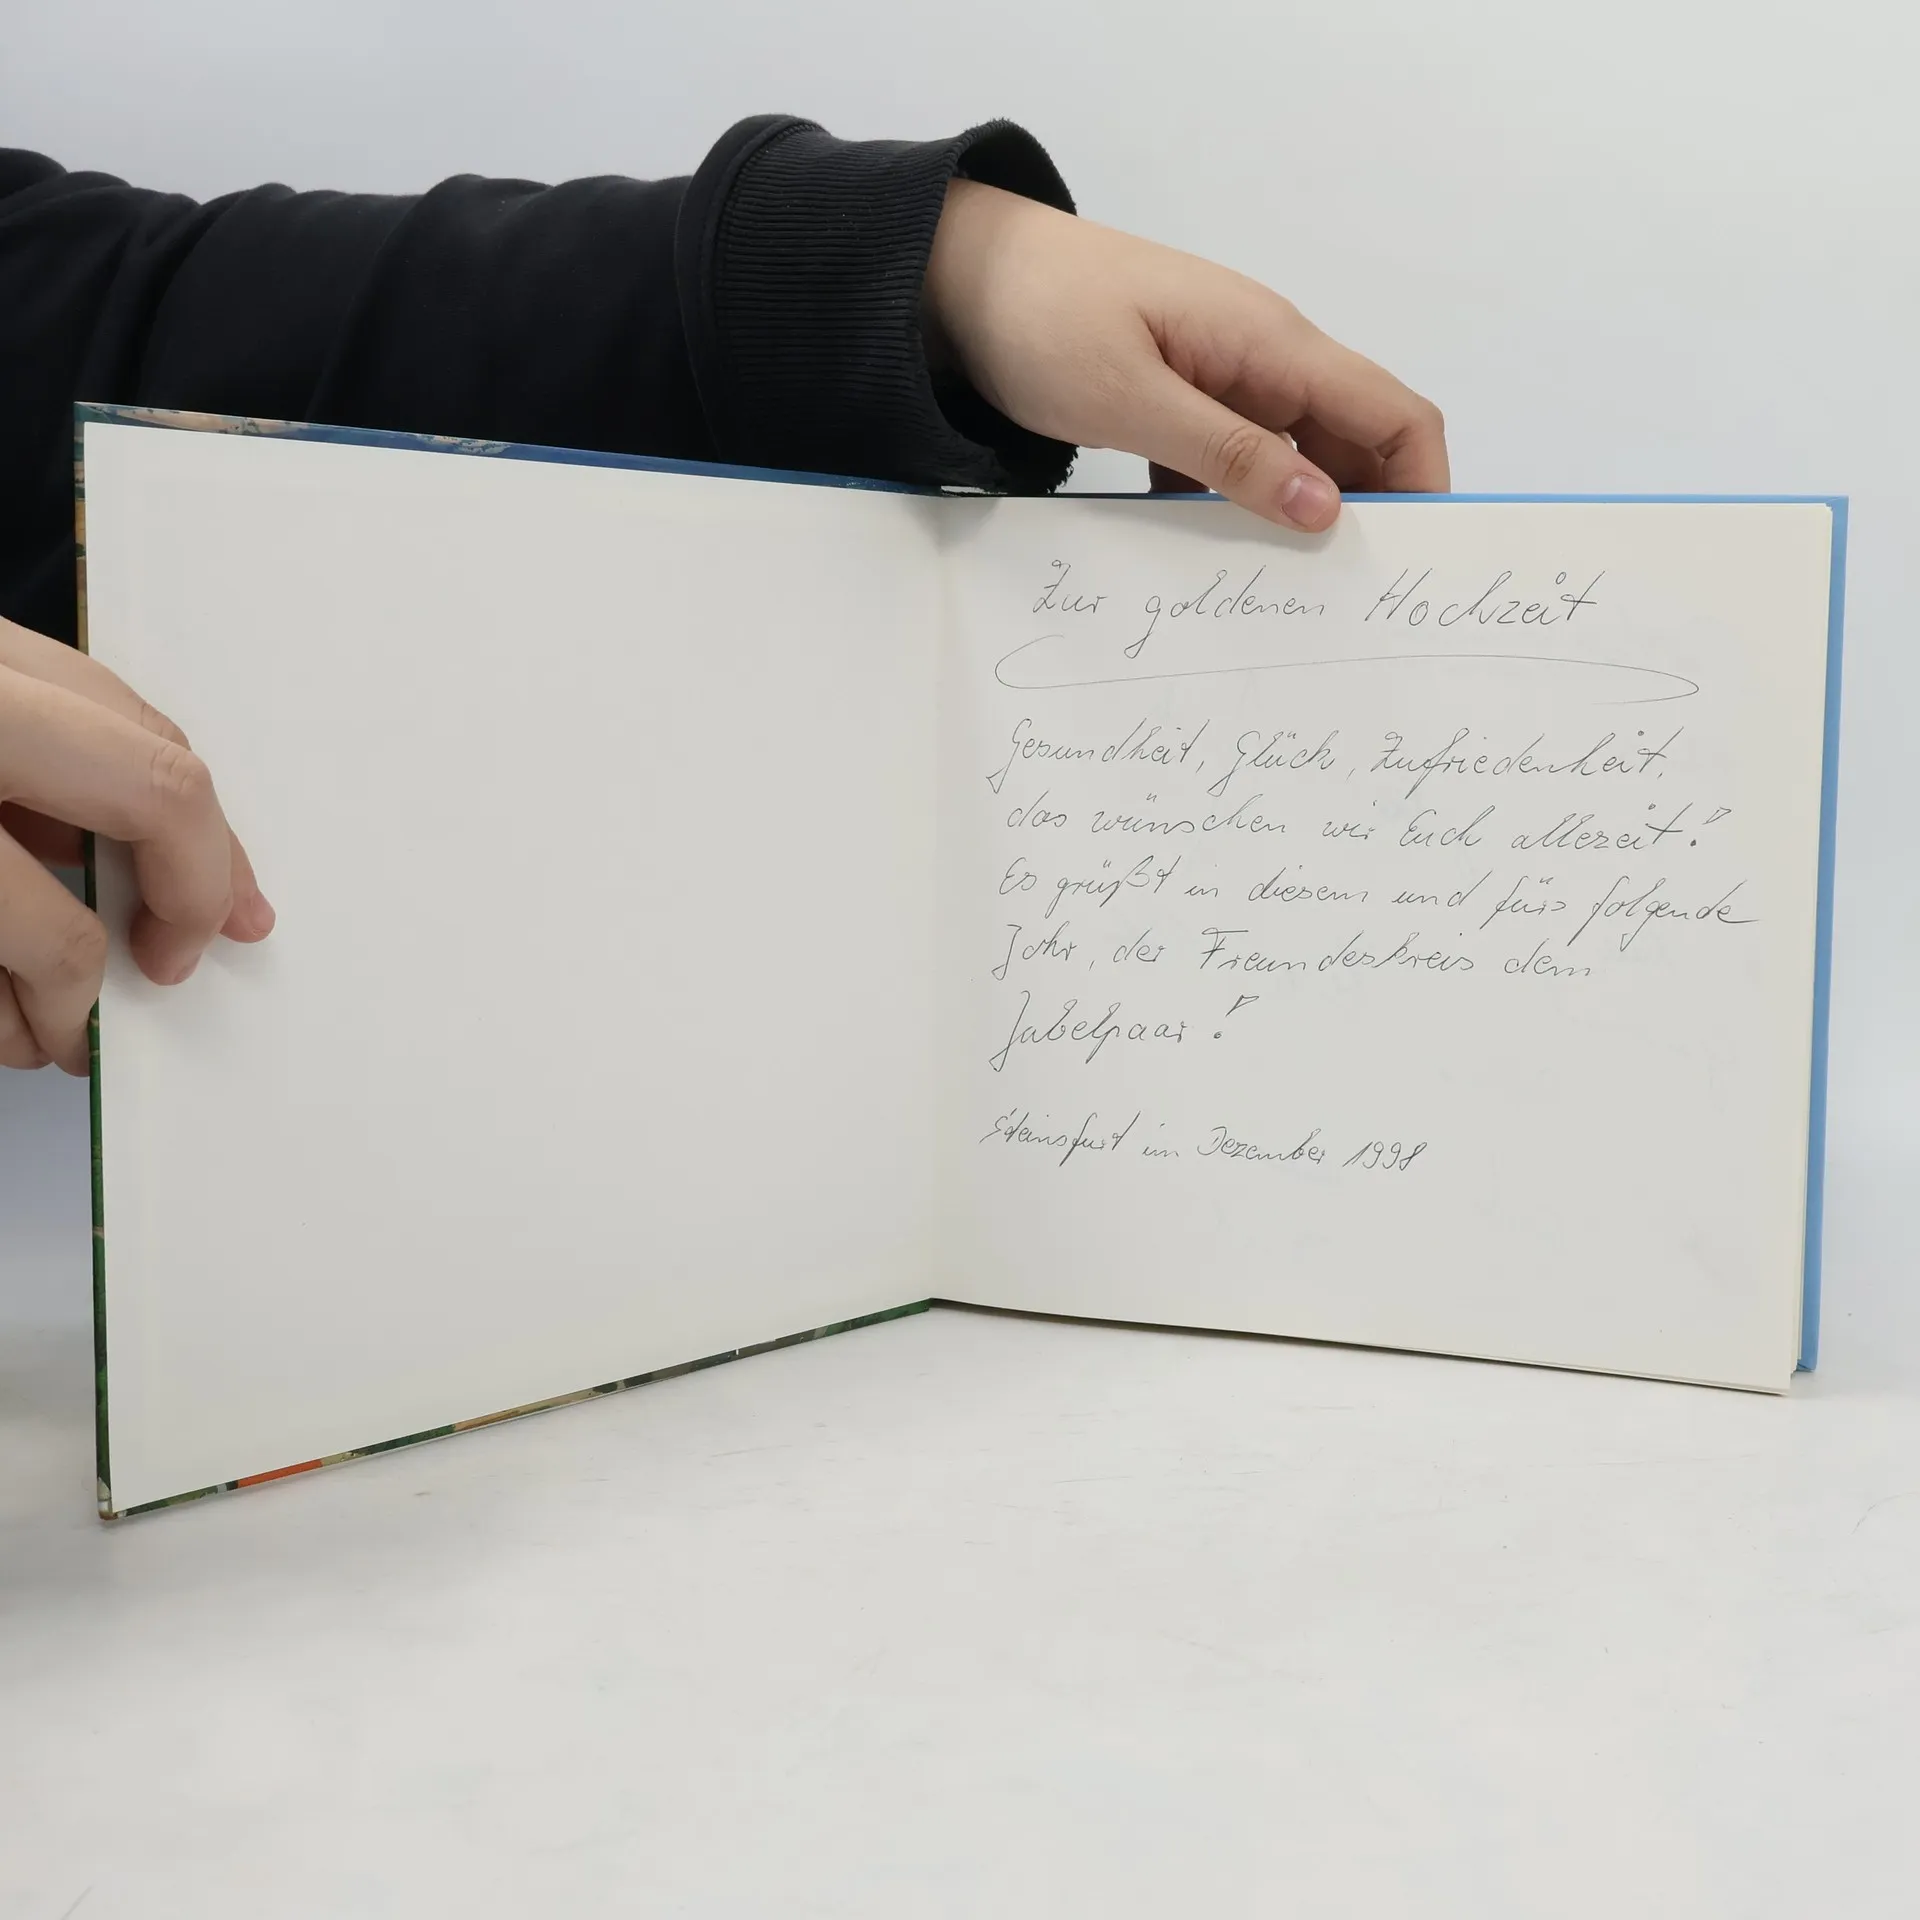 Zur goldenen Hochzeit
Gesundheit, Glück, Zufriedenheit,
das wünschen wir Euch allezeit!
Es grüßt in diesem und fürs folgende
Jahr, der Freundeskreis dem
Jubelpaar!
Steinsfurt im Dezember 1998